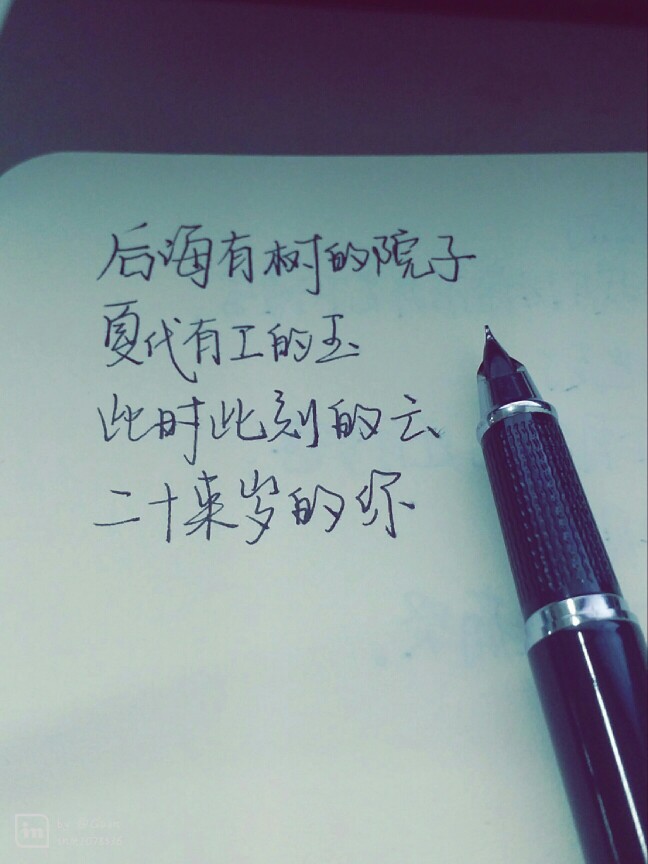 后海有树的院子
夏代有工的玉
此时此刻的云
二十来岁的你
in